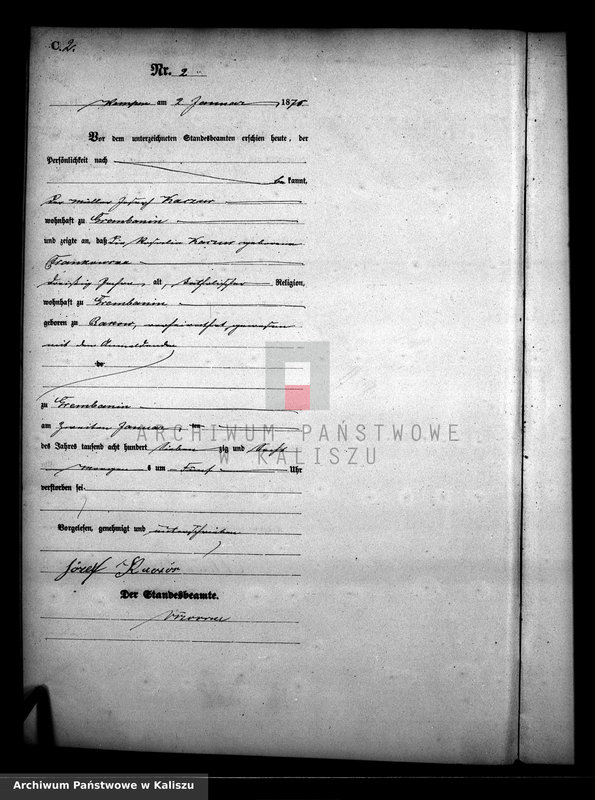 C. 2.
Nr. 2
Kempen am 2 Januar 1876
Vor dem unterzeichneten Standesbeamten erschien heute, der
Persönlichkeit nach
be kannt,
Der Müller Joseph
wohnhaft zu Grembanin
und zeigte an, daß Die geborene
dreißig Jahre alt, katholischer Religion,
wohnhaft zu Grembanin
geboren zu verheirathet gewesen
mit dem Anmeldenden
de
zu Grembanin
am zweiten Januar
des Jahres tausend acht hundert sieben zig und sechs
Morgen s um fünf Uhr
verstorben sei.
Vorgelesen, genehmigt und unterschrieben
Józef
Der Standesbeamte.
ARCHIWUM PAŃSTWOWE
W KALISZU
Archiwum Państwowe w Kaliszu